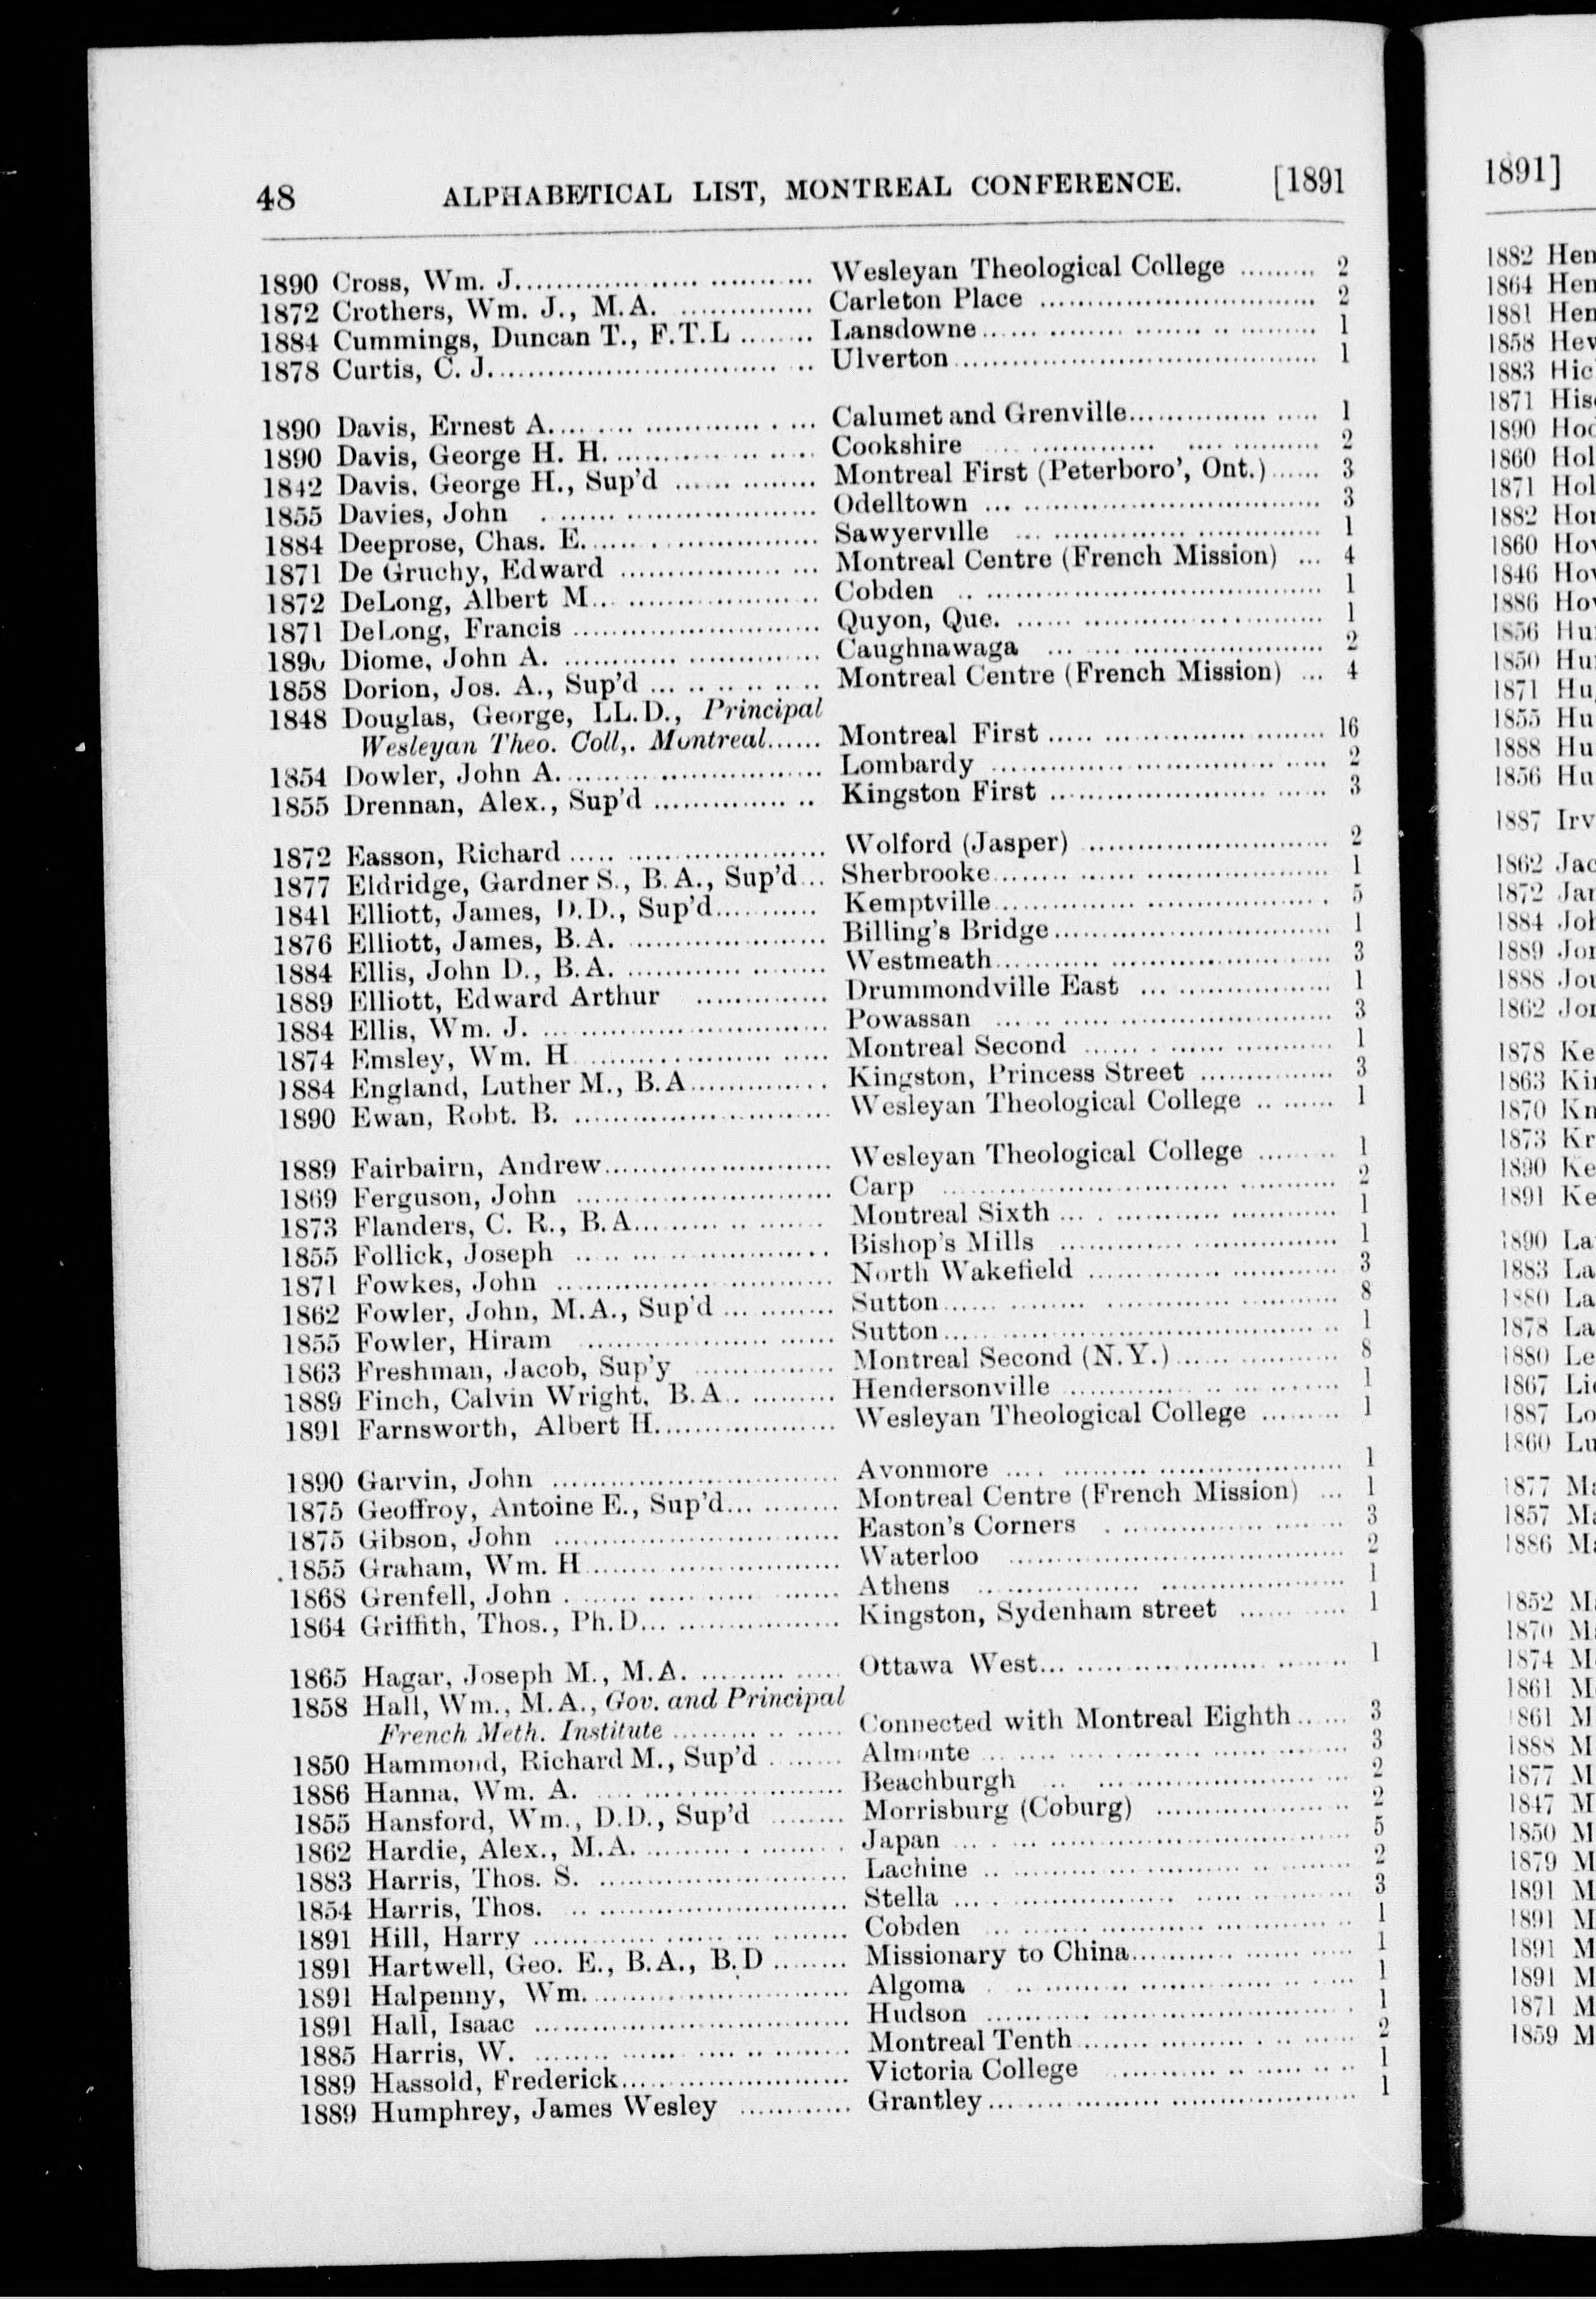 48 ALPHABETICAL LIST, MONTREAL CONFERENCE. [1891
1890 Cross, Wm. J. Wesleyan Theological College 2
1872 Crothers, Wm. J., M.A. Carleton Place 2
1884 Cummings, Duncan T., F.T.L Lansdowne 1
1878 Curtis, C. J. Ulverton 1
1890 Davis, Ernest A. Calumet and Grenville 1
1890 Davis, George H. H. Cookshire 2
1842 Davis, George H., Sup'd Montreal First (Peterboro', Ont.) 3
1855 Davies, John Odelltown 3
1884 Deeprose, Chas. E. Sawyerville 1
1871 De Gruchy, Edward Montreal Centre (French Mission) 4
1872 DeLong, Albert M. Cobden 1
1871 DeLong, Francis Quyon, Que. 1
1890 Diome, John A. Caughnawaga 2
1858 Dorion, Jos. A., Sup'd Montreal Centre (French Mission) 4
1848 Douglas, George, LL.D., Principal
Wesleyan Theo. Coll,. Montreal Montreal First 16
1854 Dowler, John A. Lombardy 2
1855 Drennan, Alex., Sup'd Kingston First 3
1872 Easson, Richard Wolford (Jasper) 2
1877 Eldridge, Gardner S., B.A., Sup'd Sherbrooke 1
1841 Elliott, James, D.D., Sup'd Kemptville 5
1876 Elliott, James, B.A. Billing's Bridge 1
1884 Ellis, John D., B.A. Westmeath 3
1889 Elliott, Edward Arthur Drummondville East 1
1884 Ellis, Wm. J. Powassan 3
1874 Emsley, Wm. H Montreal Second 1
1884 England, Luther M., B.A Kingston, Princess Street 3
1890 Ewan, Robt. B. Wesleyan Theological College 1
1889 Fairbairn, Andrew Wesleyan Theological College 1
1869 Ferguson, John Carp 2
1873 Flanders, C. R., B.A. Montreal Sixth 1
1855 Follick, Joseph Bishop's Mills 1
1871 Fowkes, John North Wakefield 3
1862 Fowler, John, M.A., Sup'd Sutton 8
1855 Fowler, Hiram Sutton 1
1863 Freshman, Jacob, Sup'y Montreal Second (N.Y.) 8
1889 Finch, Calvin Wright, B.A. Hendersonville 1
1891 Farnsworth, Albert H. Wesleyan Theological College 1
1890 Garvin, John Avonmore 1
1875 Geoffroy, Antoine E., Sup'd Montreal Centre (French Mission) 1
1875 Gibson, John Easton's Corners 3
1855 Graham, Wm. H Waterloo 2
1868 Grenfell, John Athens 1
1864 Griffith, Thos., Ph.D. Kingston, Sydenham street 1
1865 Hagar, Joseph M., M.A. Ottawa West 1
1858 Hall, Wm., M.A., Gov. and Principal
French Meth. Institute Connected with Montreal Eighth 3
1850 Hammond, Richard M., Sup'd Almonte 3
1886 Hanna, Wm. A. Beachburgh 2
1855 Hansford, Wm., D.D., Sup'd Morrisburg (Coburg) 2
1862 Hardie, Alex., M.A. Japan 5
1883 Harris, Thos. S. Lachine 2
1854 Harris, Thos. Stella 3
1891 Hill, Harry Cobden 1
1891 Hartwell, Geo. E., B.A., B.D Missionary to China 1
1891 Halpenny, Wm. Algoma 1
1891 Hall, Isaac Hudson 1
1885 Harris, W. Montreal Tenth 2
1889 Hassold, Frederick Victoria College 1
1889 Humphrey, James Wesley Grantley 1
1891]
1882 Hen
1864 Hen
1881 Hen
1858 Hew
1883 Hic
1871 His
1890 Hoc
1860 Hol
1871 Hol
1882 Hor
1860 Hov
1846 Hov
1886 Hov
1856 Hu
1850 Hu
1871 Hu
1855 Hu
1888 Hu
1856 Hu
1887 Irv
1862 Jac
1872 Jar
1884 Joh
1889 Jor
1888 Jou
1862 Jor
1878 Ke
1863 Ki
1870 Kn
1873 Kr
1890 Ke
1891 Ke
1890 La
1883 La
1880 La
1878 La
1880 Le
1867 Li
1887 Lo
1860 Lu
1877 Ma
1857 Ma
1886 Ma
1852 M
1870 M
1874 M
1861 M
1861 M
1888 M
1877 M
1847 M
1850 M
1879 M
1891 M
1891 M
1891 M
1891 M
1871 M
1859 M